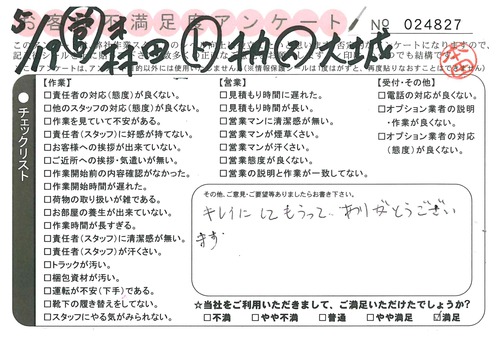 お客様不満足度アンケート № 024827
5/19 営 森田 作 大城
チェックリスト
【作業】
□責任者の対応(態度)が良くない。
□他のスタッフの対応(態度)が良くない。
□作業を見ていて不安がある。
□責任者(スタッフ)に好感が持てない。
□お客様への挨拶が出来ていない。
□ご近所への挨拶・気遣いが無い。
□作業開始前の内容確認がなかった。
□作業開始時間が遅れた。
□荷物の取り扱いが雑である。
□お部屋の養生が出来ていない。
□作業時間が長すぎる。
□責任者(スタッフ)に清潔感が無い。
□責任者(スタッフ)が汗くさい。
□トラックが汚い。
□梱包資材が汚い。
□運転が不安(下手)である。
□靴下の履き替えをしてない。
□スタッフにやる気がみられない。
【営業】
□見積もり時間に遅れた。
□見積もり時間が長い。
□営業マンに清潔感が無い。
□営業マンが煙草くさい。
□営業マンが汗くさい。
□営業態度が良くない。
□営業の説明と作業が一致してない。
【受付・その他】
□電話の対応が良くない。
□オプション業者の説明
・作業が良くない。
□オプション業者の対応
(態度)が良くない。
その他、ご意見・ご要望等ありましたらお書き下さい。
キレイにしてもらって、ありがとうござい
ます
☆当社をご利用いただきまして、ご満足いただけたでしょうか?
□不満 □やや不満 □普通 □やや満足 ☑満足